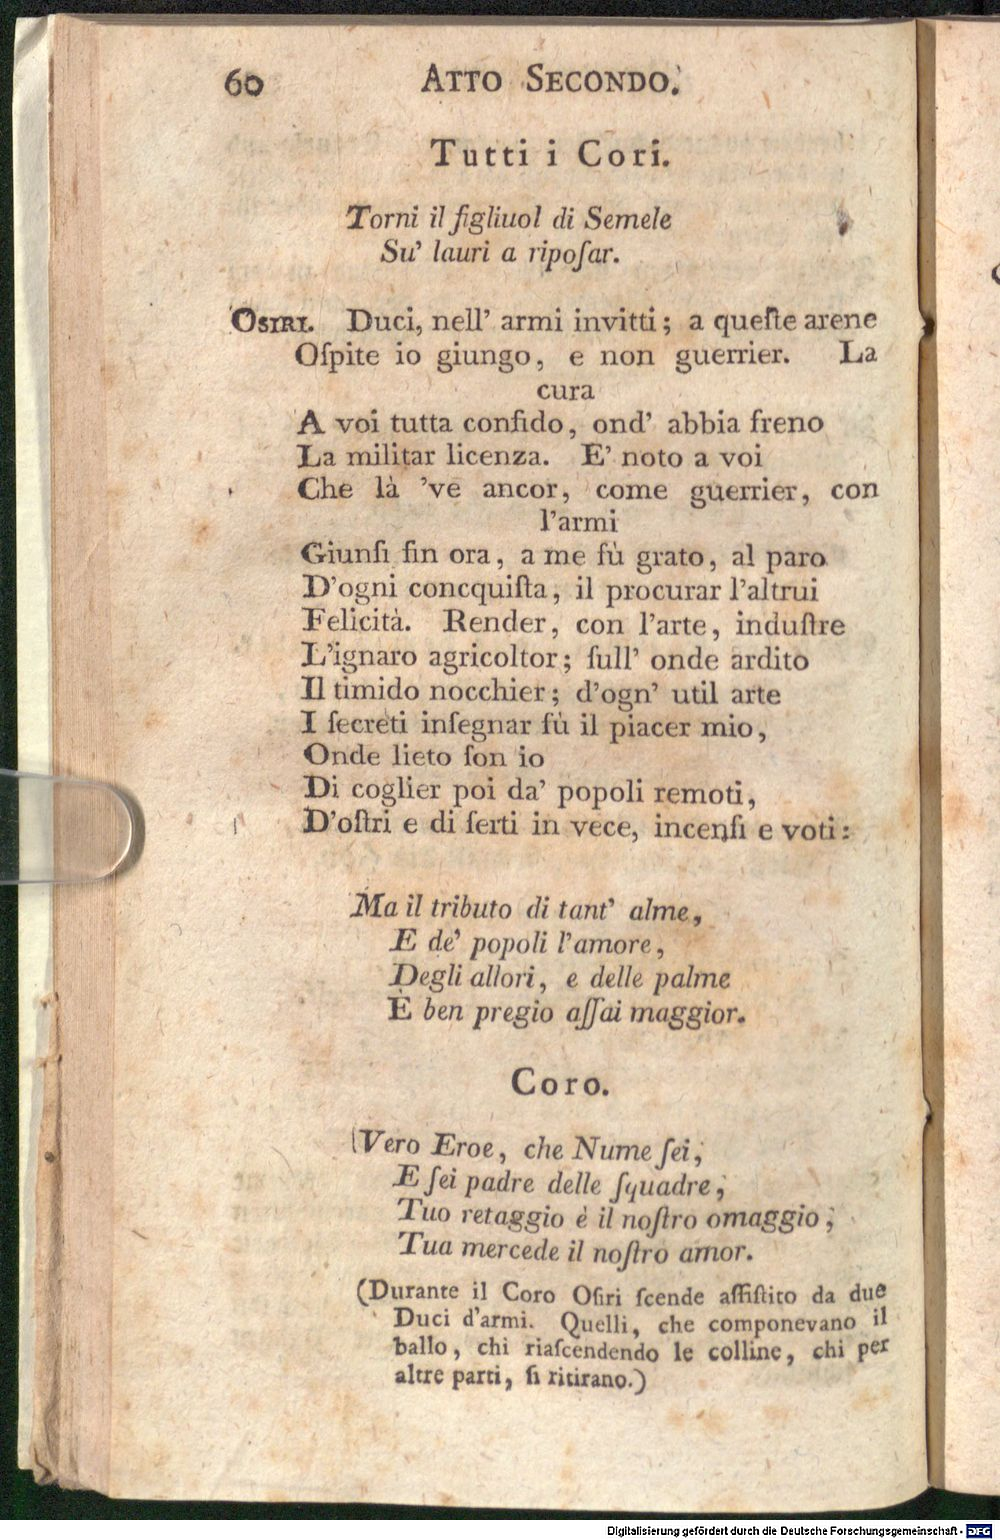 60 ATTO SECONDO.
Tutti i Cori.
Torni il figliuol di Semele
Su' lauri a ripoſar.
OSIRI. Duci, nell' armi invitti; a queſte arene
Oſpite io giungo, e non guerrier. La
cura
A voi tutta confido, ond' abbia freno
La militar licenza. E' noto a voi
Che là 've ancor, come guerrier, con
l'armi
Giunſi ſin ora, a me fù grato, al paro
D'ogni concquiſta, il procurar l'altrui
Felicità. Render, con l'arte, induſtre
L'ignaro agricoltor; ſull' onde ardito
Il timido nocchier; d'ogn' util arte
I ſecreti inſegnar fù il piacer mio,
Onde lieto ſon io
Di coglier poi da' popoli remoti,
D'oſtri e di ſerti in vece, incenſi e voti:
Ma il tributo di tant' alme,
E de' popoli l'amore,
Degli allori, e delle palme
È ben pregio aſſai maggior.
Coro.
Vero Eroe, che Nume ſei,
E ſei padre delle ſquadre,
Tuo retaggio è il noſtro omaggio,
Tua mercede il noſtro amor.
(Durante il Coro Oſiri ſcende aſſiſtito da due
Duci d'armi. Quelli, che componevano il
ballo, chi riaſcendendo le colline, chi per
altre parti, ſi ritirano.)
Digitalisierung gefördert durch die Deutsche Forschungsgemeinschaft - DFG